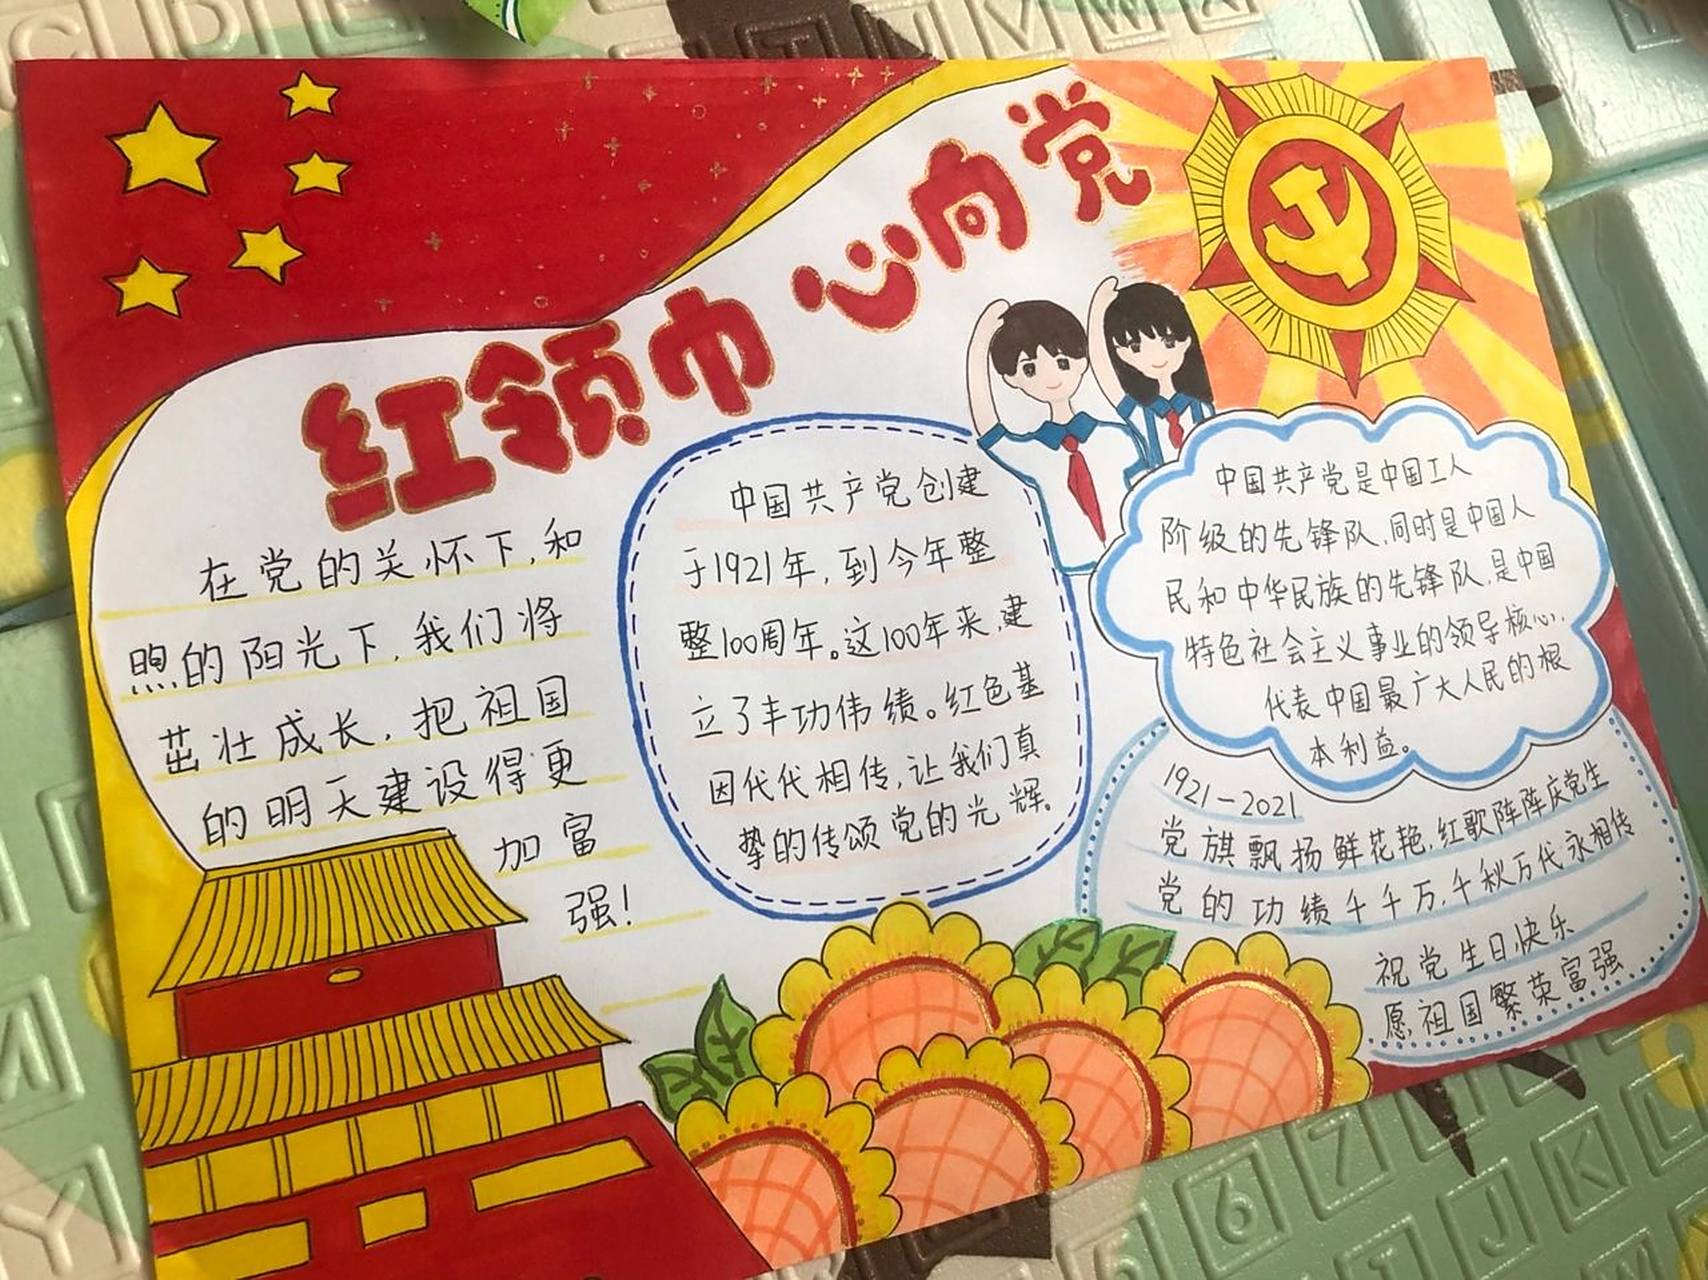 红领巾 心向党
在党的关怀下,和
煦的阳光下,我们将
茁壮成长,把祖国
的明天建设得更
加富
强!
中国共产党创建
于1921年,到今年整
整100周年。这100年来,建
立了丰功伟绩。红色基
因代代相传,让我们真
挚的传颂党的光辉。
中国共产党是中国工人
阶级的先锋队,同时是中国人
民和中华民族的先锋队,是中国
特色社会主义事业的领导核心,
代表中国最广大人民的根
本利益。
1921-2021
党旗飘扬鲜花艳,红歌阵阵庆党生
党的功绩千千万,千秋万代永相传
祝党生日快乐
愿祖国繁荣富强